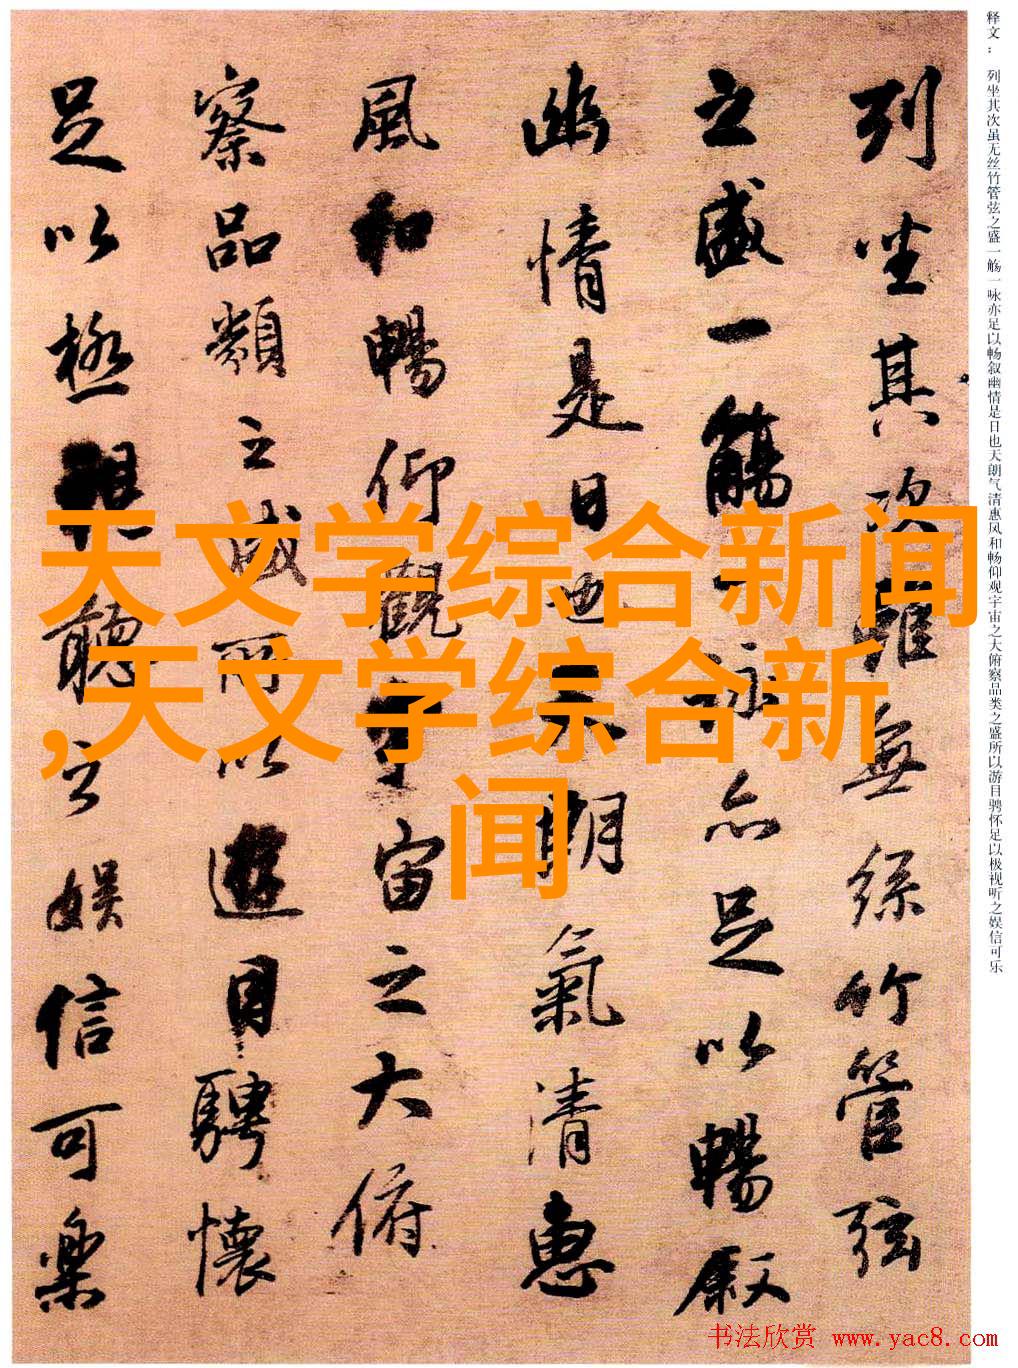 释文： 列坐其次虽无丝竹管弦之盛一觞一咏亦足以畅叙幽情是日也天朗气清惠风和畅仰观宇宙之大俯察品类之盛所以游目骋怀足以极视听之娱信可乐
列坐其次雖無絲竹管弦
之盛一觴一詠亦足以暢叙
幽情是日也天朗氣清惠
風和暢仰觀宇宙之大俯
察品類之盛所以遊目騁懷
足以極視聽之娛信可樂
天文学综合新闻
,天文学综合新
闻
书法欣赏 www.yac8.com